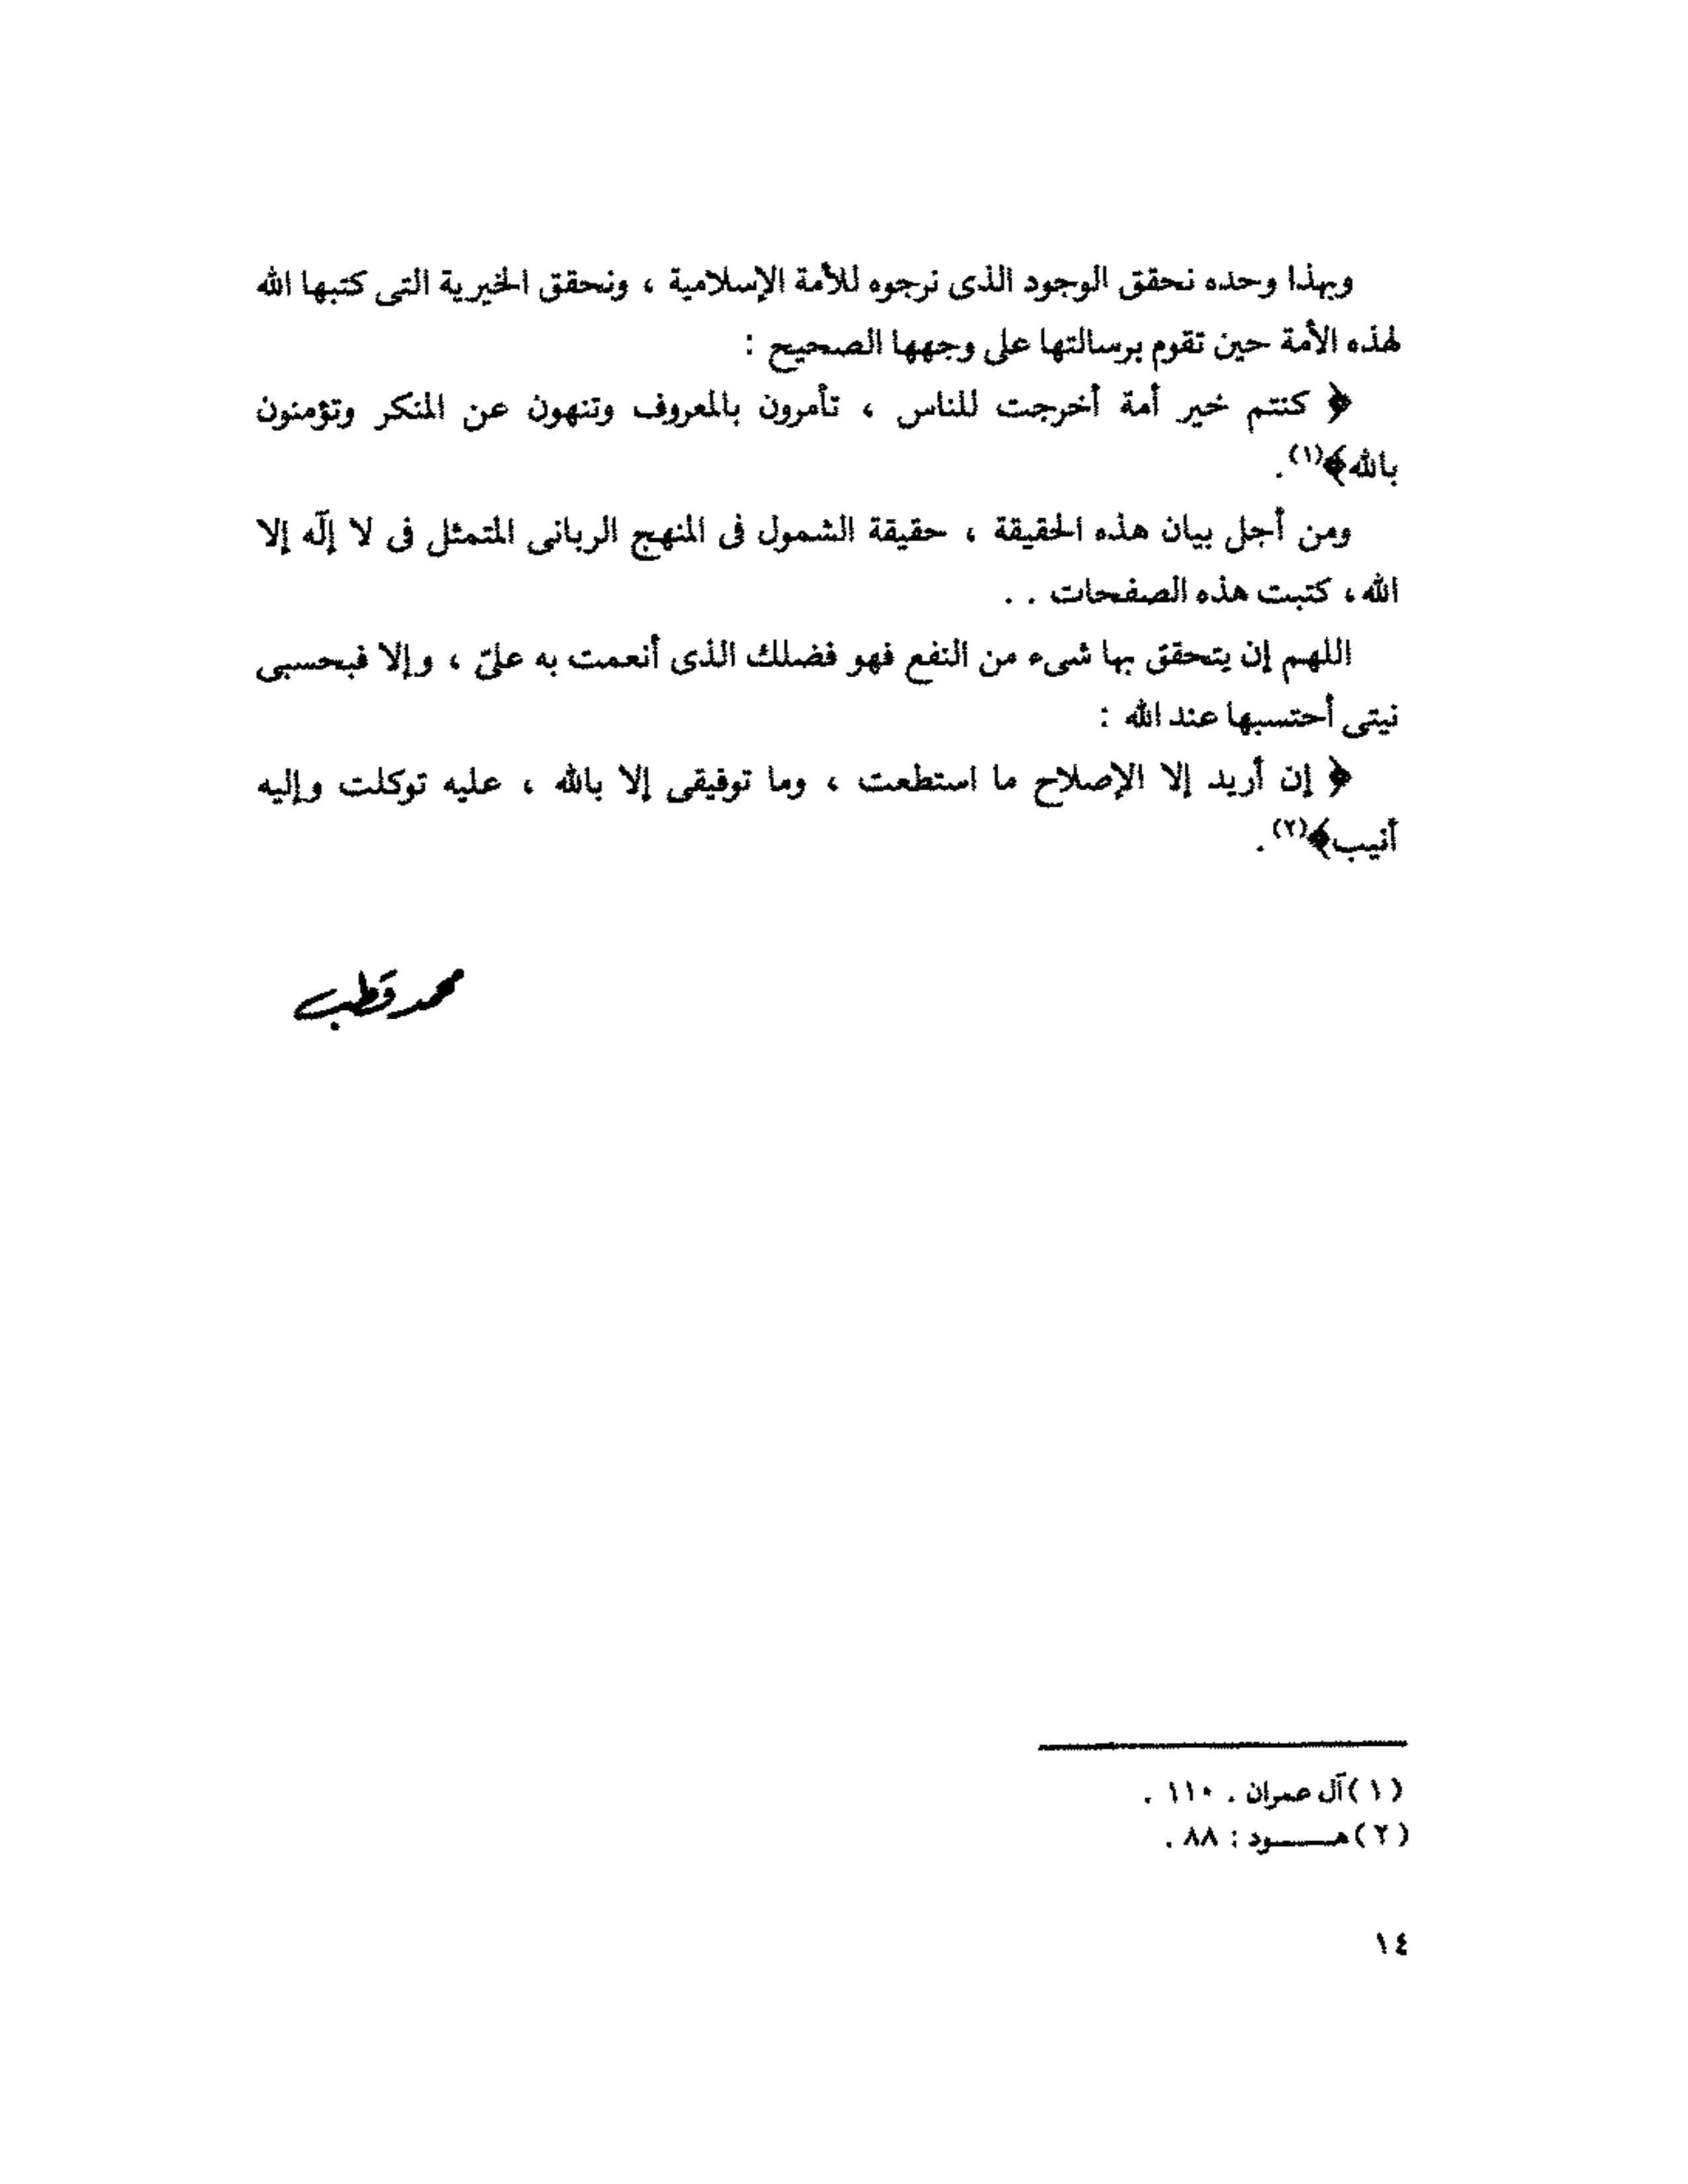 وبهذا وحده نحقق الوجود الذى نرجوه للأمة الإسلامية ، ونحقق الخيرية التى كتبها الله
لهذه الأمة حين تقوم برسالتها على وجهها الصحيح :
﴿ كنتم خير أمة أخرجت للناس ، تأمرون بالمعروف وتنهون عن المنكر وتؤمنون
بالله﴾(١).
ومن أجل بيان هذه الحقيقة ، حقيقة الشمول فى المنهج الربانى المتمثل فى لا إلّه إلا
الله ، كتبت هذه الصفحات . .
اللهم إن يتحقق بها شىء من النفع فهو فضلك الذى أنعمت به علىّ ، وإلا فبحسبى
نيتى أحتسبها عند الله :
﴿ إن أريد إلا الإصلاح ما استطعت ، وما توفيقى إلا بالله ، عليه توكلت وإليه
أنيب﴾(٢) .
محمد قطب
( ١ ) آل عمران . ١١٠ .
( ٢ ) هـــــود : ٨٨ .
١٤